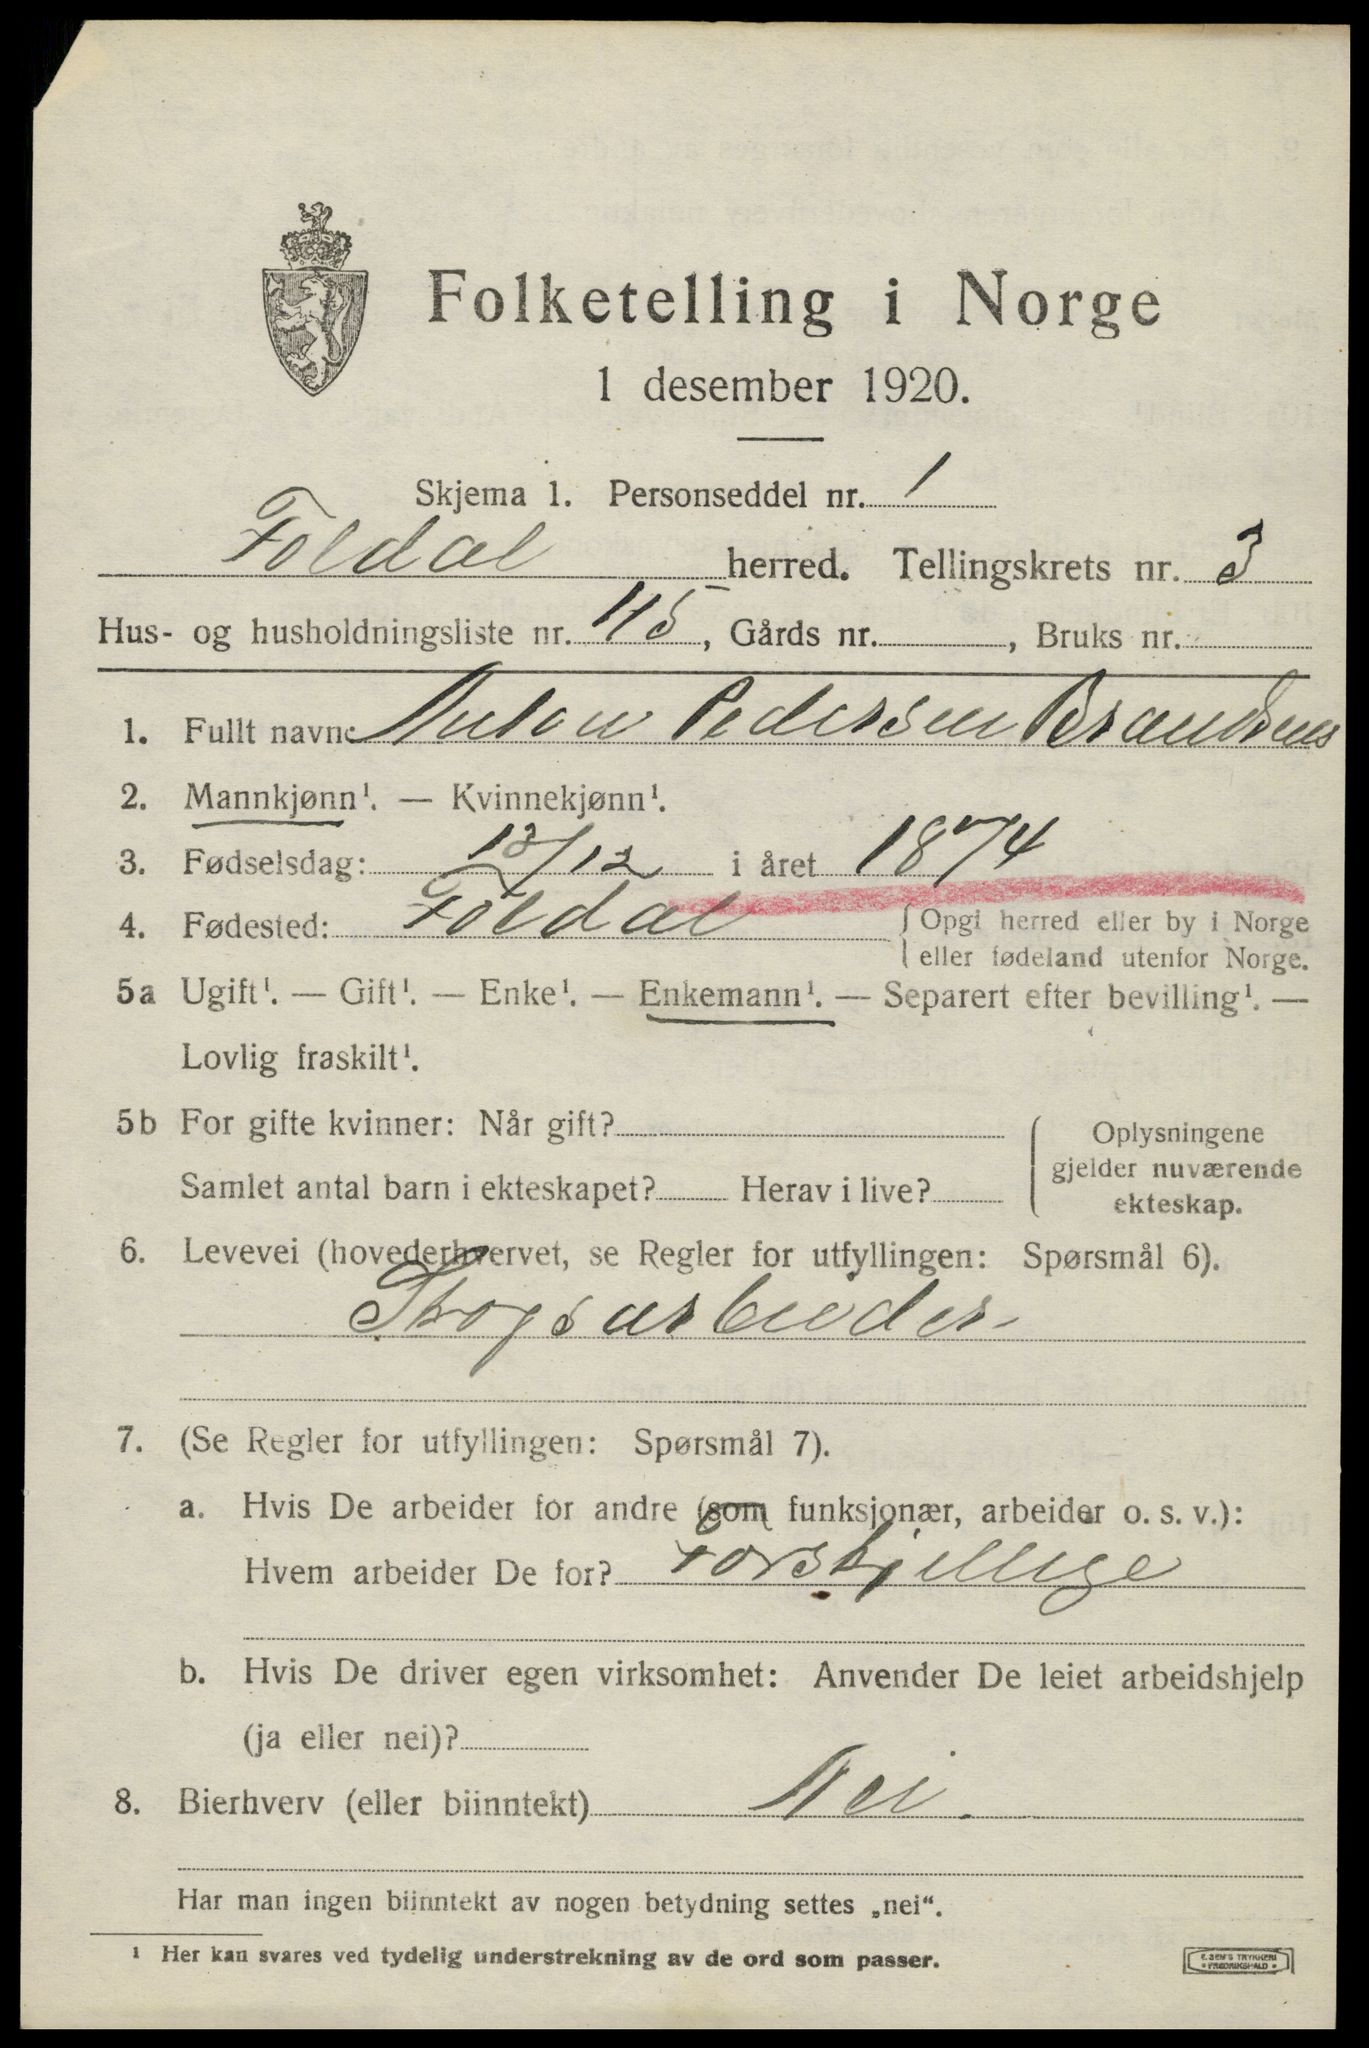 Folketelling i Norge
1 desember 1920.
Skjema 1. Personseddel nr. 1
Foldal herred. Tellingskrets nr. 3
Hus- og husholdningsliste nr. 45, Gårds nr. , Bruks nr.
1. Fullt navn: Anton Pedersen
2. Mannkjønn¹. — Kvinnekjønn¹.
3. Fødselsdag: 12/12 i året 1874
4. Fødested: Foldal { Opgi herred eller by i Norge
eller fødeland utenfor Norge.
5a Ugift¹. — Gift¹. — Enke¹. — Enkemann¹. — Separert efter bevilling¹. —
Lovlig fraskilt¹.
5b For gifte kvinner: Når gift?
Samlet antal barn i ekteskapet? Herav i live?
{ Oplysningene
gjelder nuværende
ekteskap.
6. Levevei (hovederhvervet, se Regler for utfyllingen: Spørsmål 6).
Skogsarbeider
7. (Se Regler for utfyllingen: Spørsmål 7).
a. Hvis De arbeider for andre (som funksjonær, arbeider o. s. v.):
Hvem arbeider De for? Forskjellige
b. Hvis De driver egen virksomhet: Anvender De leiet arbeidshjelp
(ja eller nei)?
8. Bierhverv (eller biinntekt) Nei.
Har man ingen biinntekt av nogen betydning settes „nei“.
¹ Her kan svares ved tydelig understrekning av de ord som passer.
E. SEM'S TRYKKERI
• FREDRIKSHALD •